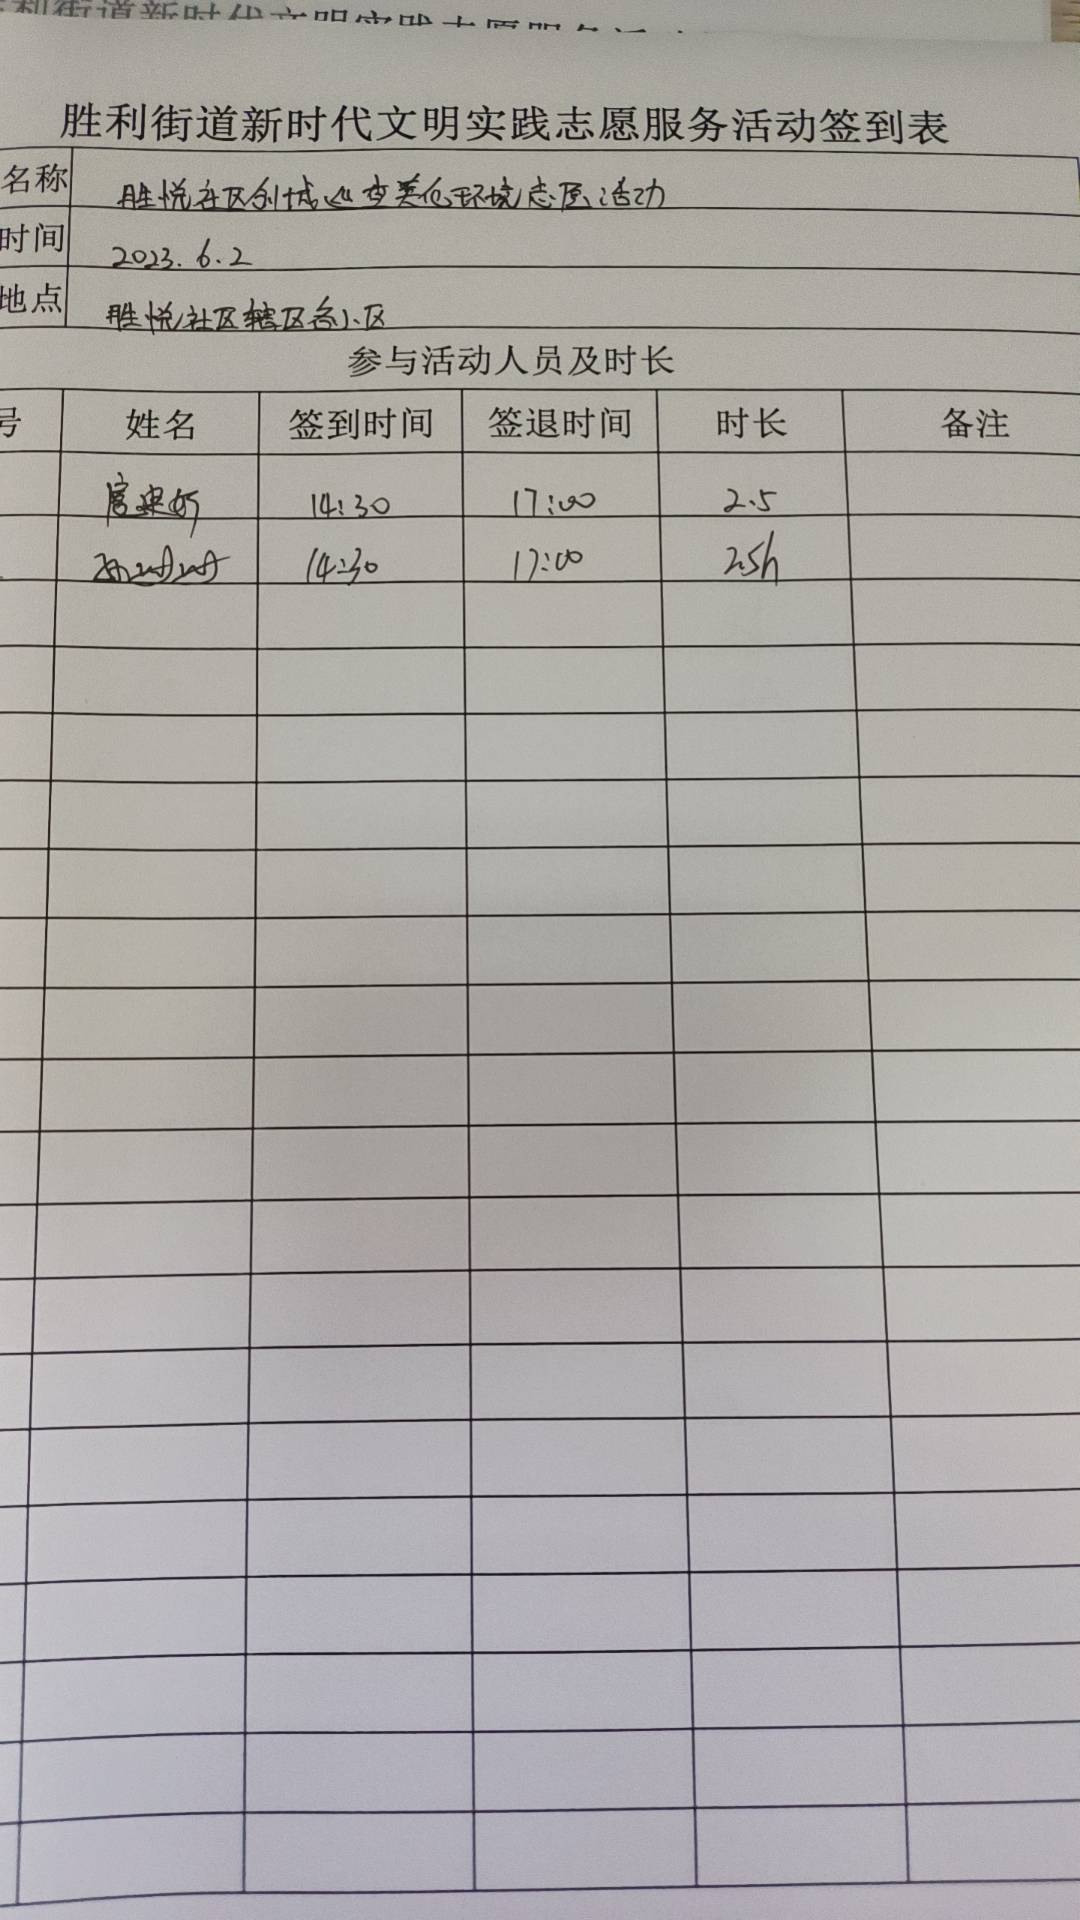 胜利街道新时代文明实践志愿服务活动签到表
名称 胜悦社区创城巡查美化环境志愿活动
时间 2023.6.2
地点 胜悦社区辖区各小区
参与活动人员及时长
号 姓名 签到时间 签退时间 时长 备注
14:30 17:00 2.5
14:30 17:00 2.5h